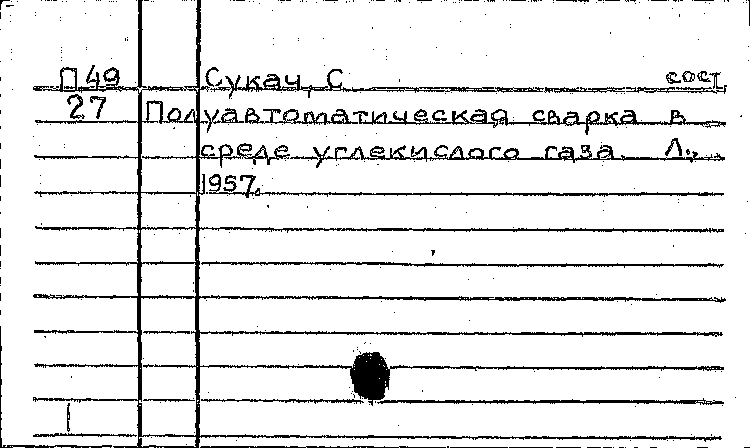 П 49 Сукач, С сост.
27 Полуавтоматическая сварка в
среде углекислого газа. Л.,
1957.